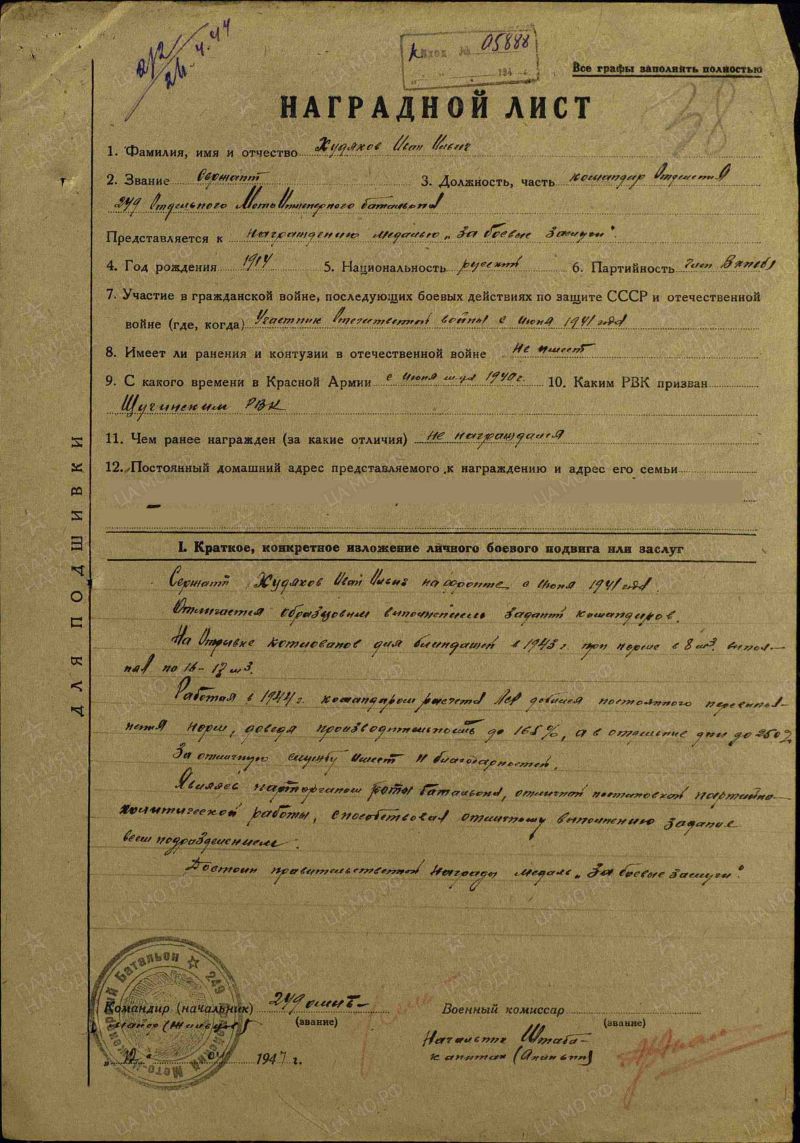 212
26.4.44
Вход № 05888
194
Все графы заполнять полностью
38
НАГРАДНОЙ ЛИСТ
1. Фамилия, имя и отчество Худяков Иван Ильич
2. Звание Сержант 3. Должность, часть командир Отделения
249 Отдельного МотоИнженерного батальона
Представляется к награждению медалью „За боевые заслуги".
4. Год рождения 1914 5. Национальность русский 6. Партийность член ВКП(б)
7. Участие в гражданской войне, последующих боевых действиях по защите СССР и отечественной
войне (где, когда) Участник Отечественной войны с июня 1941 года
8. Имеет ли ранения и контузии в отечественной войне Не имеет
9. С какого времени в Красной Армии с июня 1940 г. 10. Каким РВК призван
Щучинским РВК
11. Чем ранее награжден (за какие отличия) не награждался
12. Постоянный домашний адрес представляемого к награждению и адрес его семьи
—
ДЛЯ ПОДШИВКИ
I. Краткое, конкретное изложение личного боевого подвига или заслуг
Сержант Худяков Иван Ильич на фронте с июня 1941 года.
Отличается образцовым выполнением задач командиров.
На Отрывке котлованов для блиндажей в 1943 г. при норме в 8 м³. выпол-
нял по 16-17 м³.
Работая в 1944 г. командиром расчета добился постоянного перевыпол-
нения норм, доведя производительность до 165%, а в отдельные дни до 250%
За отличную службу имеет 11 благодарностей.
Являясь парторганом роты батальона, отличной постановкой партийно-
политической работы, способствовал отличному выполнению задания
всем подразделением.
Достоин правительственной награды медаль „За боевые заслуги".
Командир (начальник) 249 омиб Военный комиссар
(звание) (звание)
майор Начальник Штаба-
капитан (Ананьин)
1944 г.
249 Мото-Инженерный Батальон
ЦА МО РФ